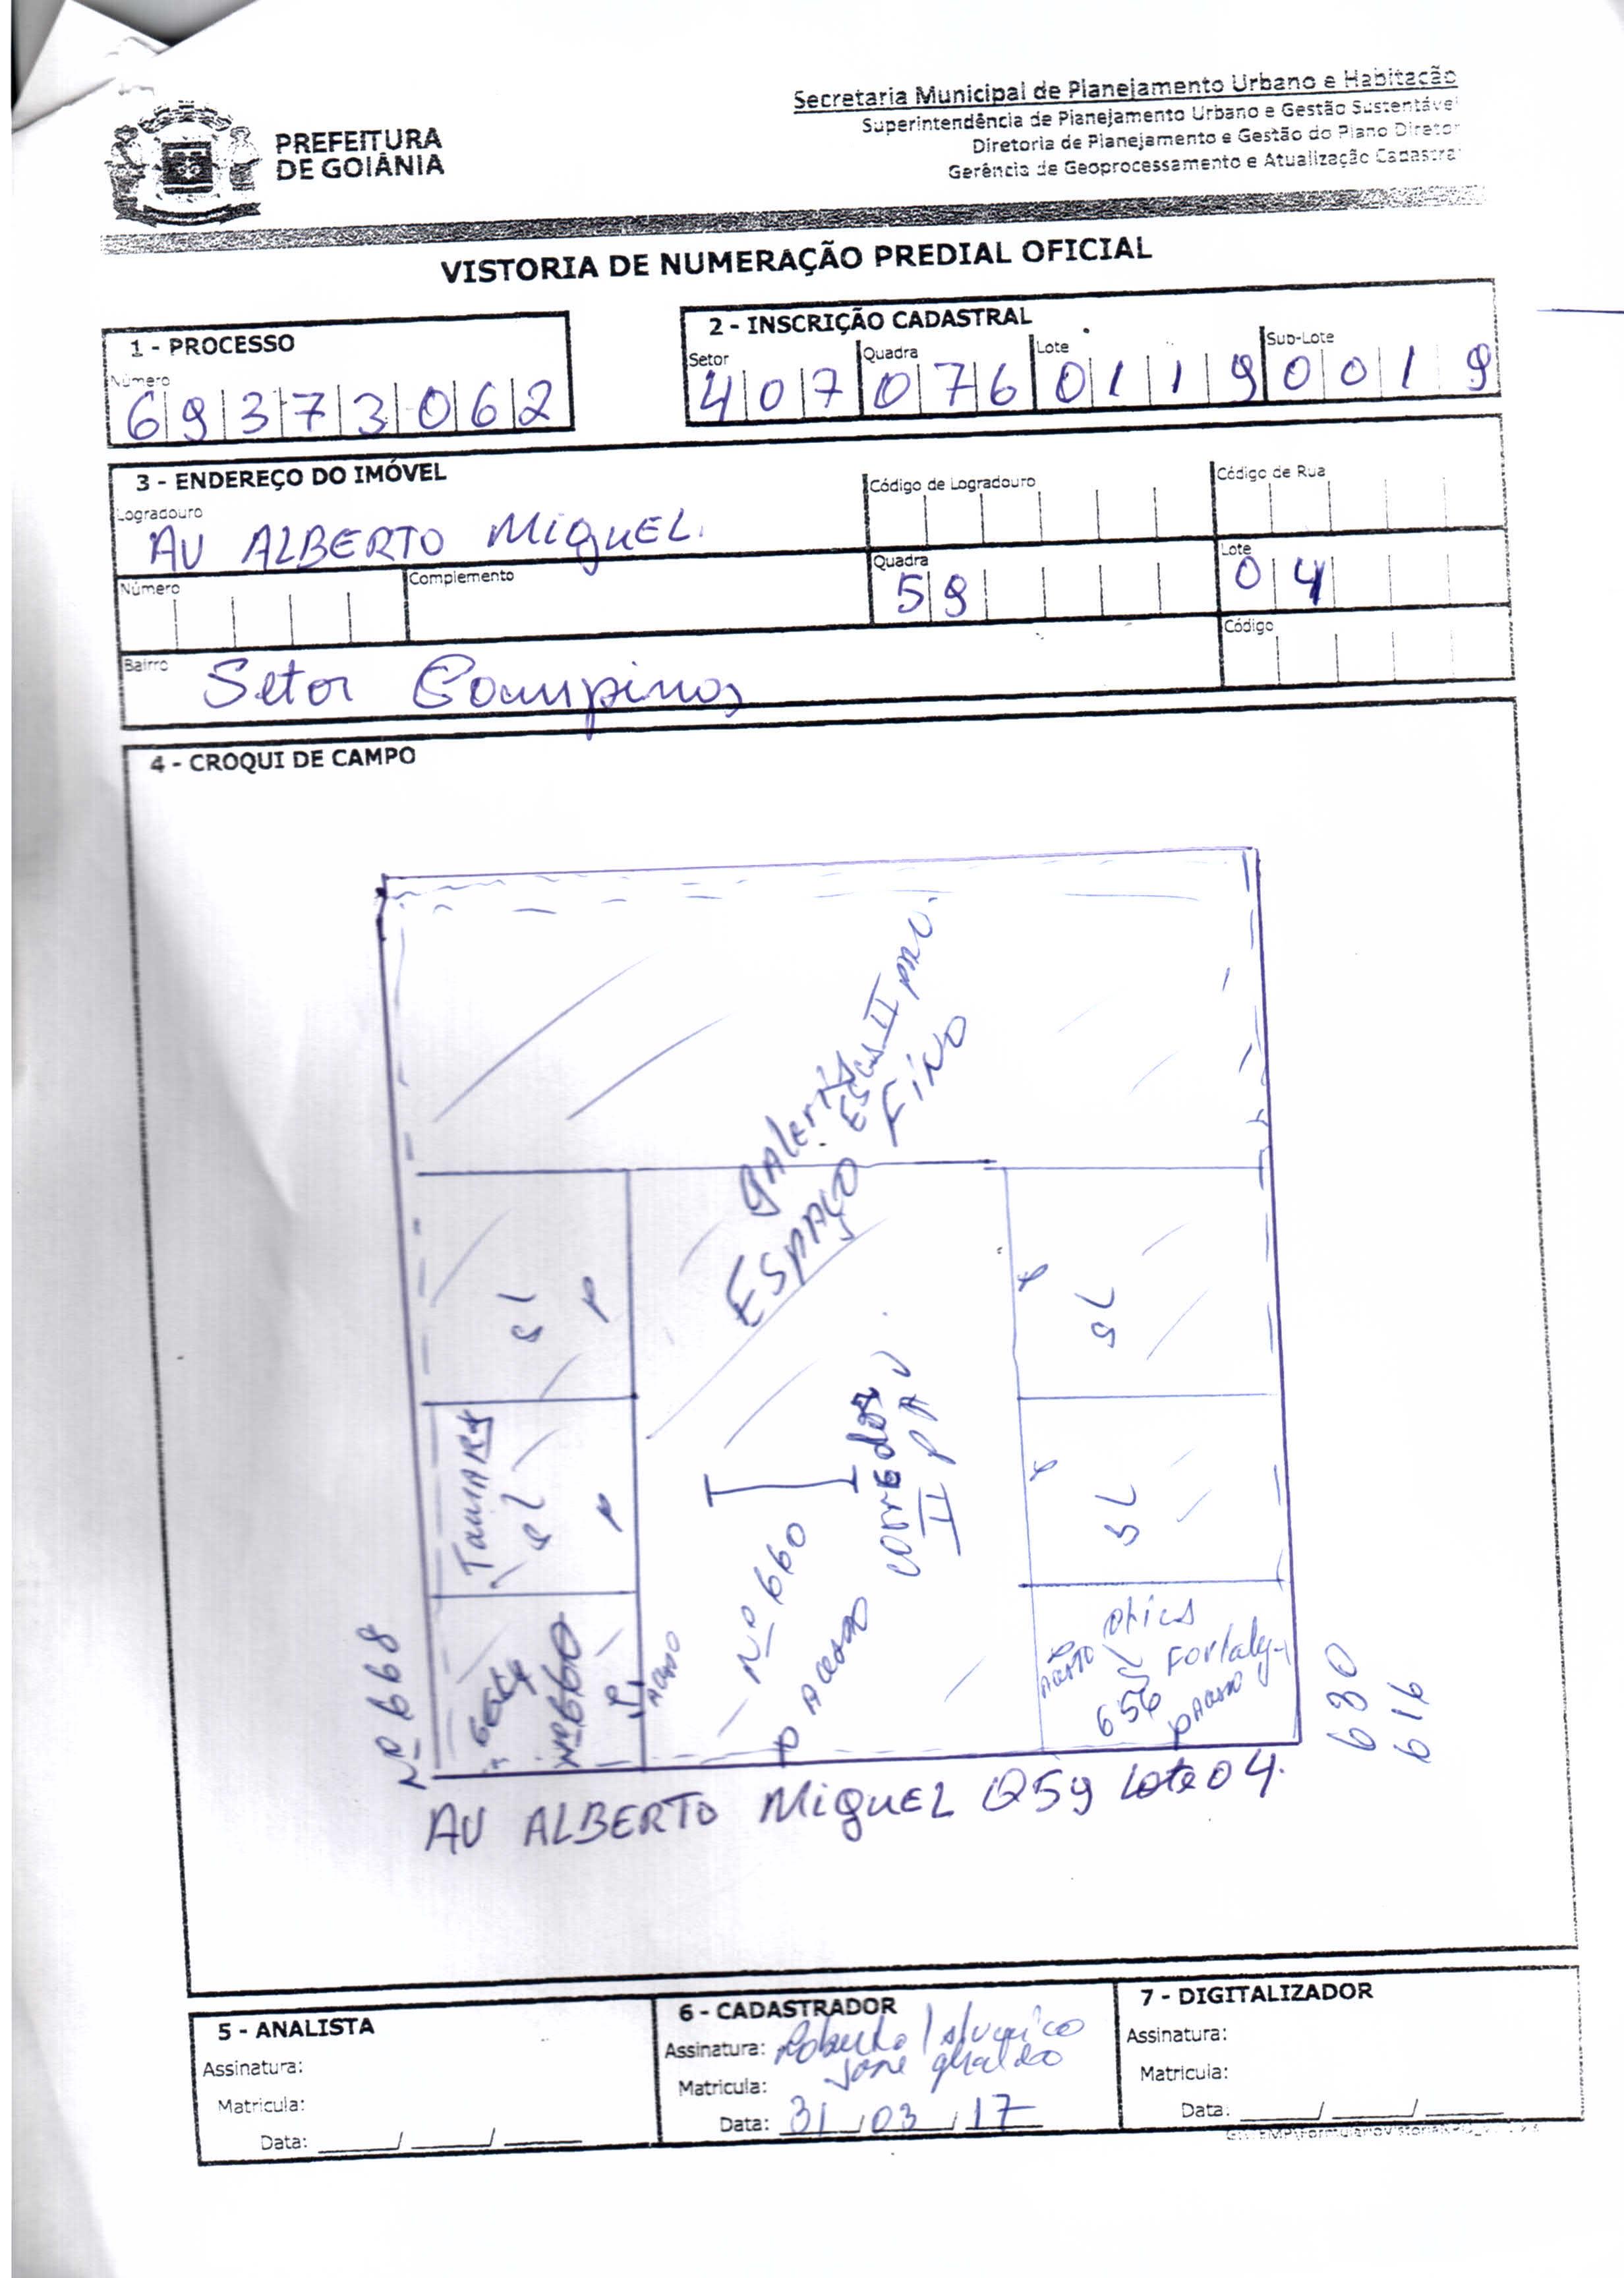 PREFEITURA
DE GOIÂNIA
Secretaria Municipal de Planejamento Urbano e Habitação
Superintendência de Planejamento Urbano e Gestão Sustentável
Diretoria de Planejamento e Gestão do Plano Diretor
Gerência de Geoprocessamento e Atualização Cadastral
VISTORIA DE NUMERAÇÃO PREDIAL OFICIAL
1 - PROCESSO
Número
69373062
2 - INSCRIÇÃO CADASTRAL
Setor Quadra Lote Sub-Lote
407 076 0119 0019
3 - ENDEREÇO DO IMÓVEL
Logradouro Código de Logradouro Código de Rua
AV ALBERTO MIGUEL.
Número Complemento Quadra Lote
59 04
Bairro Código
Setor Campinas
4 - CROQUI DE CAMPO
galeria
ESPAÇO FINO
SL
SL
SL
SL
corredor
II PAV
Nº 660
ACESSO
Nº 660
ACESSO
Nº 668
656
ACESSO
630
616
AV ALBERTO MIGUEL Q59 Lote 04.
5 - ANALISTA
Assinatura:
Matricula:
Data: ____/____/____
6 - CADASTRADOR
Assinatura: Roberto
José Geraldo
Matricula:
Data: 31/03/17
7 - DIGITALIZADOR
Assinatura:
Matricula:
Data: ____/____/____